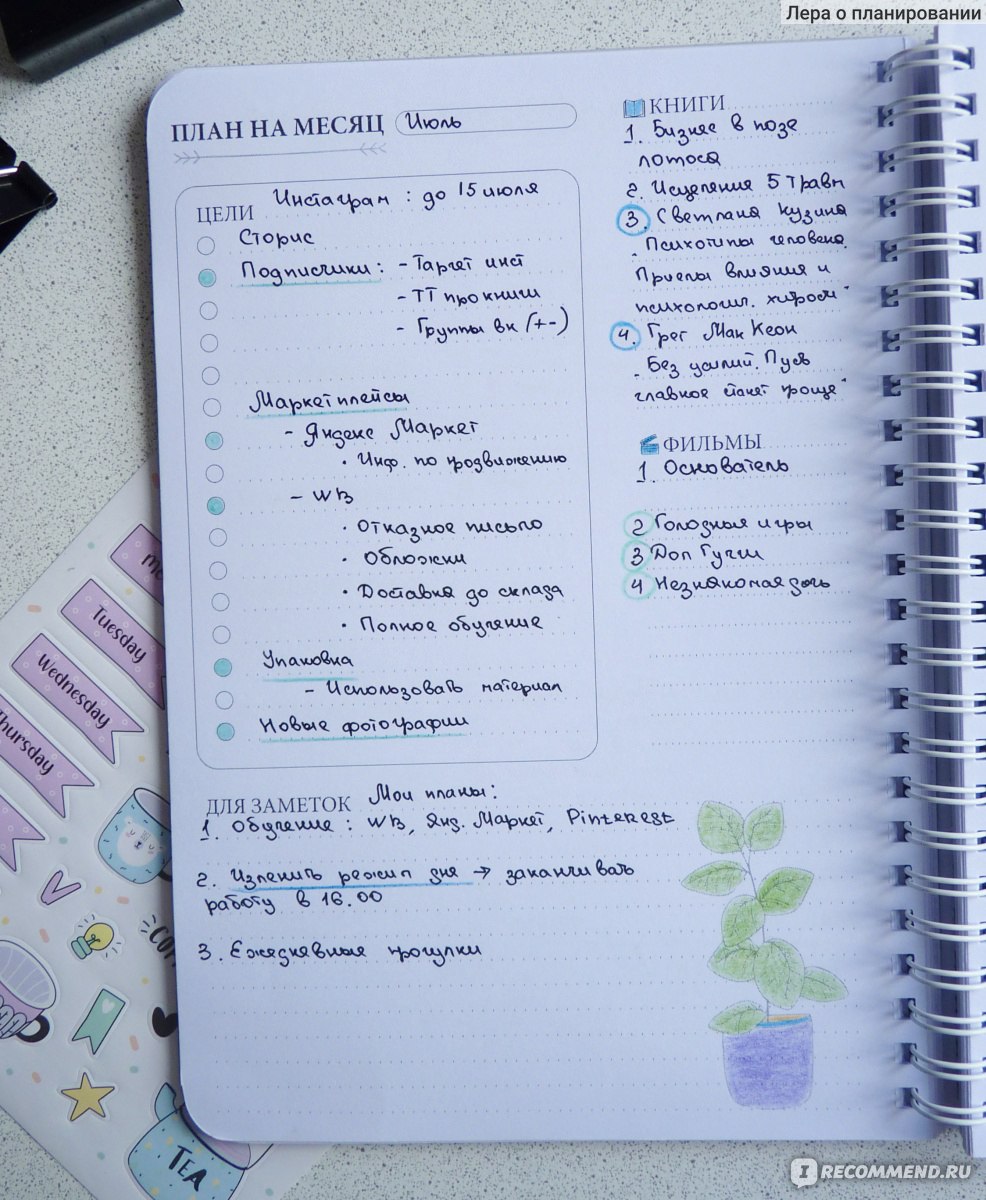 Лера о планировании
ПЛАН НА МЕСЯЦ Июль
ЦЕЛИ Инстаграм : до 15 июля
Сторис
Подписчики: - Таргет инст
- ТТ про книги
- Группы вк (+-)
Маркетплейсы
- Яндекс Маркет
· Инф. по продвижению
- WB
· Отказное письмо
· Обложки
· Доставка до склада
· Полное обучение
Упаковка
- Использовать материал
Новые фотографии
КНИГИ
1. Бизнес в позе
лотоса
2. Исцеления 5 травм
3. Светлана Кузина
"Психотипы человека.
Приемы влияния и
психологич. хиром"
4. Грег МакКеон
"Без усилий. Пусть
главное станет проще"
ФИЛЬМЫ
1. Основатель
2 Голодные игры
3 Дом Гуччи
4 Незнакомая дочь
ДЛЯ ЗАМЕТОК Мои планы:
1. Обучение : WB, Янд. Маркет, Pinterest
2. Изменить режим дня → заканчивать
работу в 16.00
3. Ежедневные прогулки
Tuesday
Wednesday
Thursday
TEA
IRECOMMEND.RU